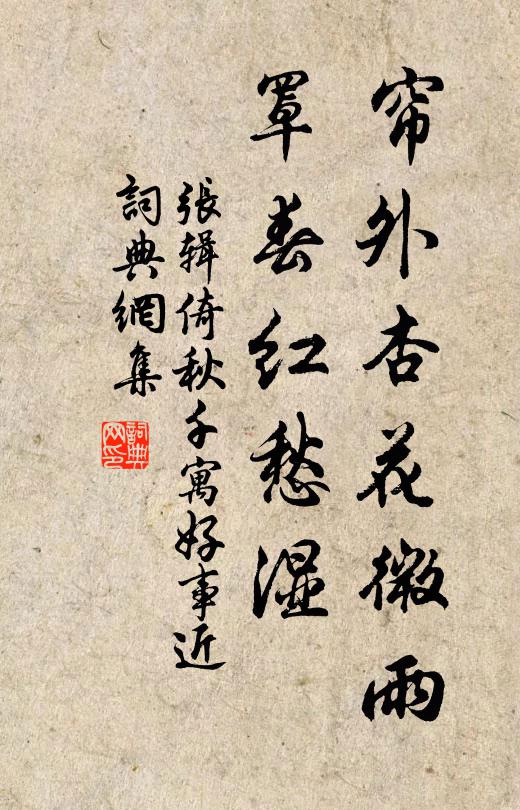 帘外杏花微雨
罩春红愁湿
張辑倚秋千寓好事近
詞典網集
詞典网印